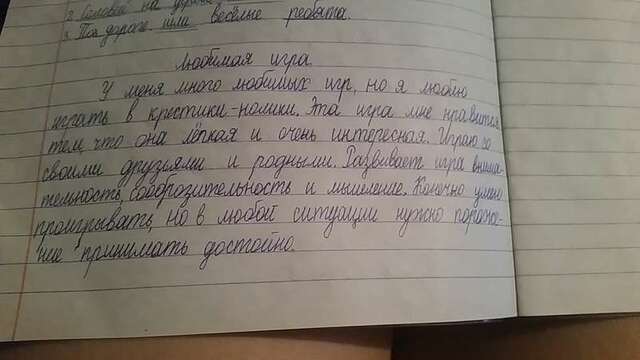 По дороге шли весело ребята.
Любимая игра.
У меня много любимых игр, но я люблю
играть в крестики-нолики. Эта игра мне нравится
тем, что она лёгкая и очень интересная. Играю со
своими друзьями и родными. Развивает игра внима-
тельность, бодрительность и мышление. Конечно умею
проигрывать, но в любой ситуации нужно пораже-
ние принимать достойно.